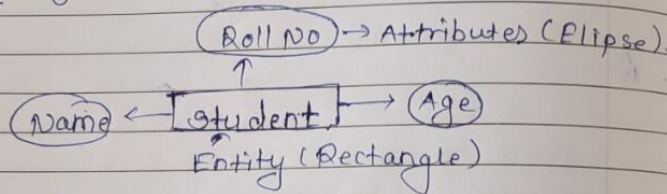 Roll No → Attributes (Elipse).
Name ← Student → Age
Entity (Rectangle)